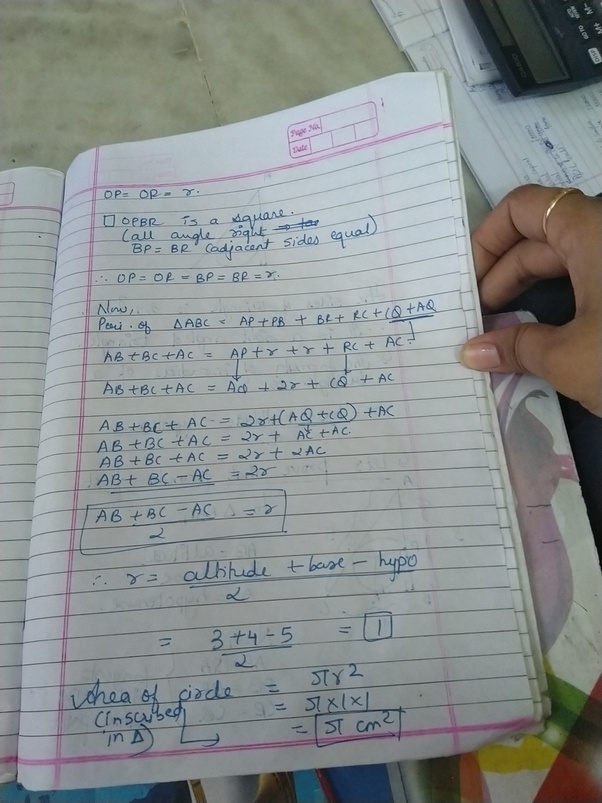 Page No.
Date
OP = OR = r.
□ OPBR is a square.
(all angle right
BP = BR (adjacent sides equal)
∴ OP = OR = BP = BR = r.
Now,
Peri. of ΔABC = AP + PB + BR + RC + CQ + AQ
AB + BC + AC = AP + r + r + RC + AC
AB + BC + AC = AQ + 2r + CQ + AC
AB + BC + AC = 2r + (AQ + CQ) + AC
AB + BC + AC = 2r + AC + AC
AB + BC + AC = 2r + 2AC
AB + BC - AC = 2r
AB + BC - AC = r
2
∴ r = altitude + base - hypo
2
= 3 + 4 - 5 = 1
2
Area of circle = πr²
(Inscribed = π×1×1
in Δ) = π cm²